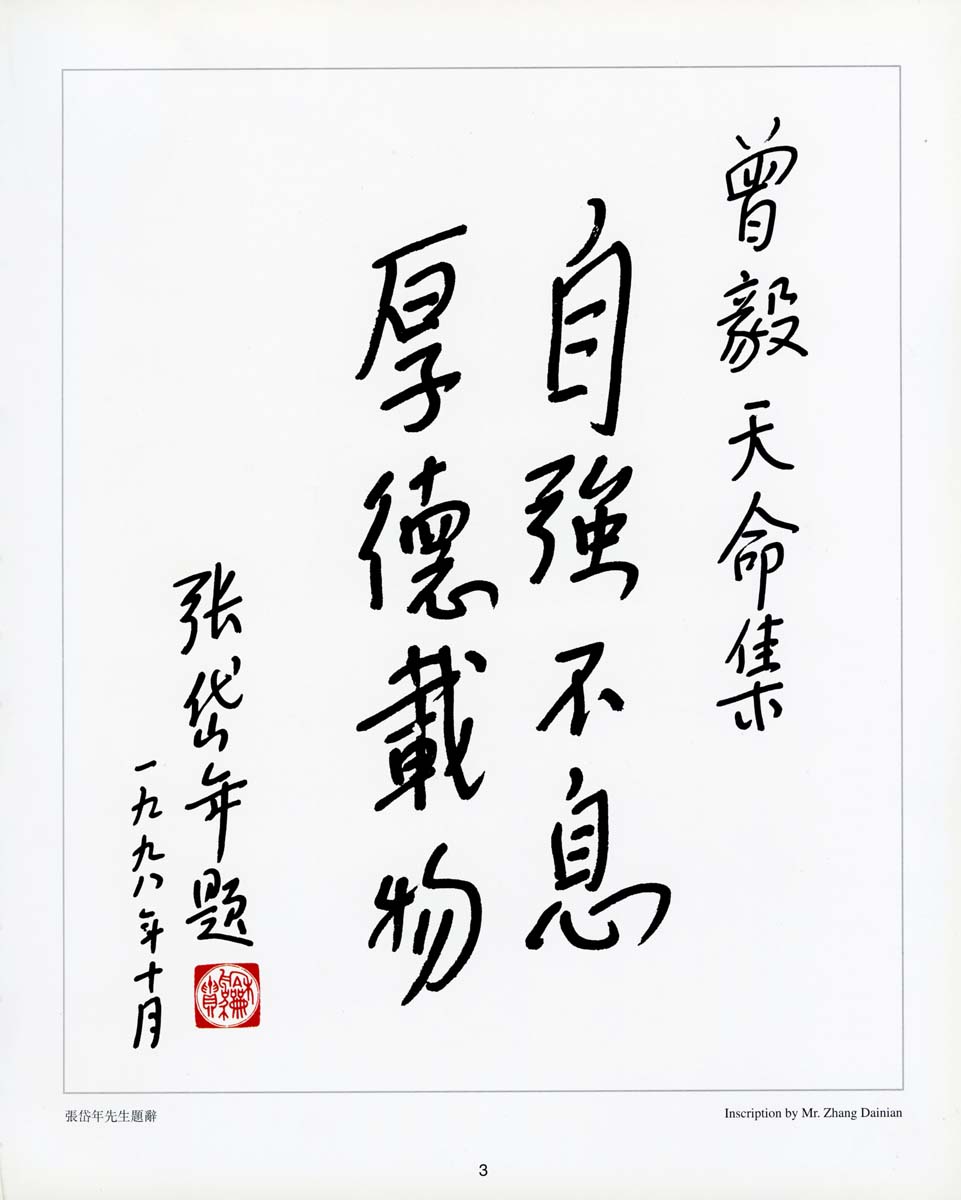 曾毅天命集
自強不息
厚德載物
张岱年題
一九九八年十月
張岱年先生題辭
Inscription by Mr. Zhang Dainian
3